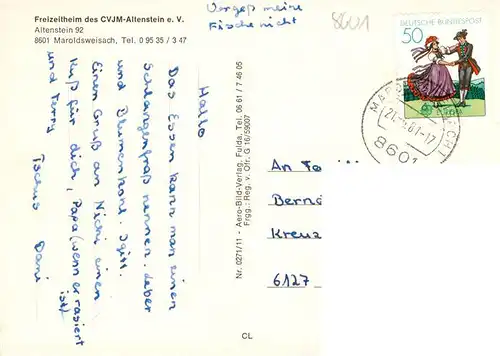 Freizeitheim des CVJM-Altenstein e. V.
Altenstein 92
8601 Maroldsweisach, Tel. 0 95 35 / 3 47
Vergeß meine
Fische nicht
8601
DEUTSCHE BUNDESPOST
50
8601
Hallo
Das Essen kann man einen
Schlangenfraß nennen. Leber
und Blumenkohl. Igitt.
Einen Gruß an Nicki einen
Kuß für dich, Papa (wenn er rasiert
ist)
und Terry
Tschüs Dani
Nr. 0271/11 - Aero-Bild-Verlag, Fulda, Tel. 06 61 / 7 46 05
Frgg.: Reg. v. Ofr. G 16/59007
CL
An
Bernd
Kreuz
6127